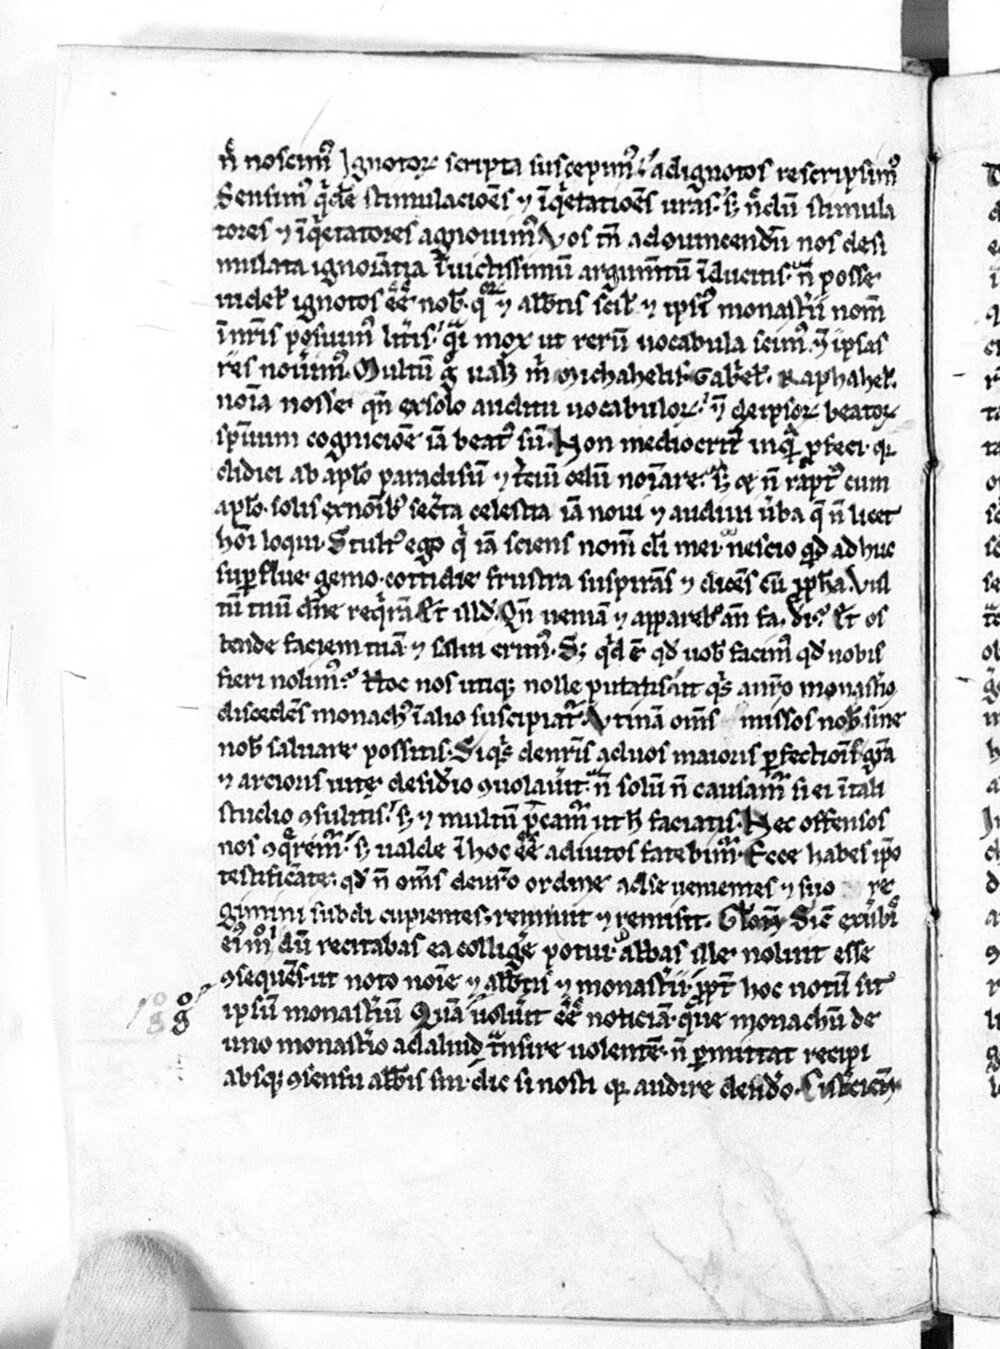 n̄ noscim᷒ Ignotoꝝ scripta suscepim᷒ ⁊ ad ignotos rescripsim᷒
Sensim᷒ qͥdē stimulacioēs ⁊ īqͥetatioēs uras. sꝫ nōdū stimula
tores ⁊ īqͥetatores agnouim᷒ Vos tn̄ ad ꝯuincendū nos desi
mulata ignorātia īuictissimū argumt̄ū īducitis. n̄ posse
uidelꝫ ignotos eē nob̄. qͦꝝ ⁊ abb̄tis scilꝫ ⁊ ipsi᷒ monastͥii nom̄
ī nr̄is posuim᷒ litt̄is. qͣsi mox ut rerū uocabula scim᷒. ⁊ ipsas
res nouim᷒. Multū gͦ ualꝫ mͥ Michahelis. Gabͥel. Raphahel.
noīa nosse. qn̄ ex solo auditu uocabuloꝝ. ⁊ de ipsoꝝ beatoꝝ
spūum cognicioē iā beat᷒ sū. Non mediocrit̄ inqͣ ꝓfeci. qꝫ
didici ab aplo paradisū ⁊ t̄ciū celū noīare. sꝫ ⁊ n̄ rapt᷒ cum
aplo. solis ex noībꝫ sec̄ta celestia iā noui ⁊ audiui ūba q̄ n̄ licet
hoī loqui. Stult᷒ ego qͥ iā sciens nom̄ dī mei. nescio qd̄ adhuc
suꝑflue gemo. cottidie frustra suspirās ⁊ dicēs cū ꝓph̄a. Vul
tū tuū dn̄e reqͥrā Et illd̄. Qn̄ ueniā ⁊ apparebo an̄ fa. dī.? Et os
tende faciem tuā ⁊ salui erim᷒. Sꝫ qͥd ē qd̄ uob̄ facim᷒ qd̄ nobis
fieri nolim᷒? Hoc nos utiqꝫ nolle putatis. ut qͥs a nr̄o monastͥio
discedēs monach᷒ ī alio suscipiat᷒. Vtinā om̄s missos nob̄. sine
nob̄ saluare possitis. Siqͥs de nr̄is ad uos maioris ꝑfectiōis grā
⁊ arcioris uite desid̄io ꝯuolau̓it. n̄ solū n̄ causam᷒ si ei ī tali
studio ꝯsulitis. sꝫ ⁊ multū p̄cam᷒ ut h̄ faciatis. Nec offensos
nos ꝯqͣrem᷒. sꝫ ualde ī hoc eē adiutos fatebim᷒. Ecce habes ip̄o
testificāte. qd̄ n̄ om̄s de nr̄o ordine ad se uenientes ⁊ suo re
gimini subdi cupientes. rennuit ⁊ remisit. Sic̄ ex u̓bis
ei᷒ dū recitabas ea collig̓e potui. abbas ille noluit esse
ꝯsequēs. ut noto noīe ⁊ abb̄tis ⁊ monastͥii. ꝓpt̓ hoc notū sit
ipsū monastͥiū Quā uolu̓it eē noticiā. que monachū de
uno monastͥio ad aliud tͣnsire uolentē. n̄ ꝑmittat recipi
absqꝫ ꝯsensu abb̄is sui. dic si nosti qꝫ audire desid̓o. Cist̓ciens̄